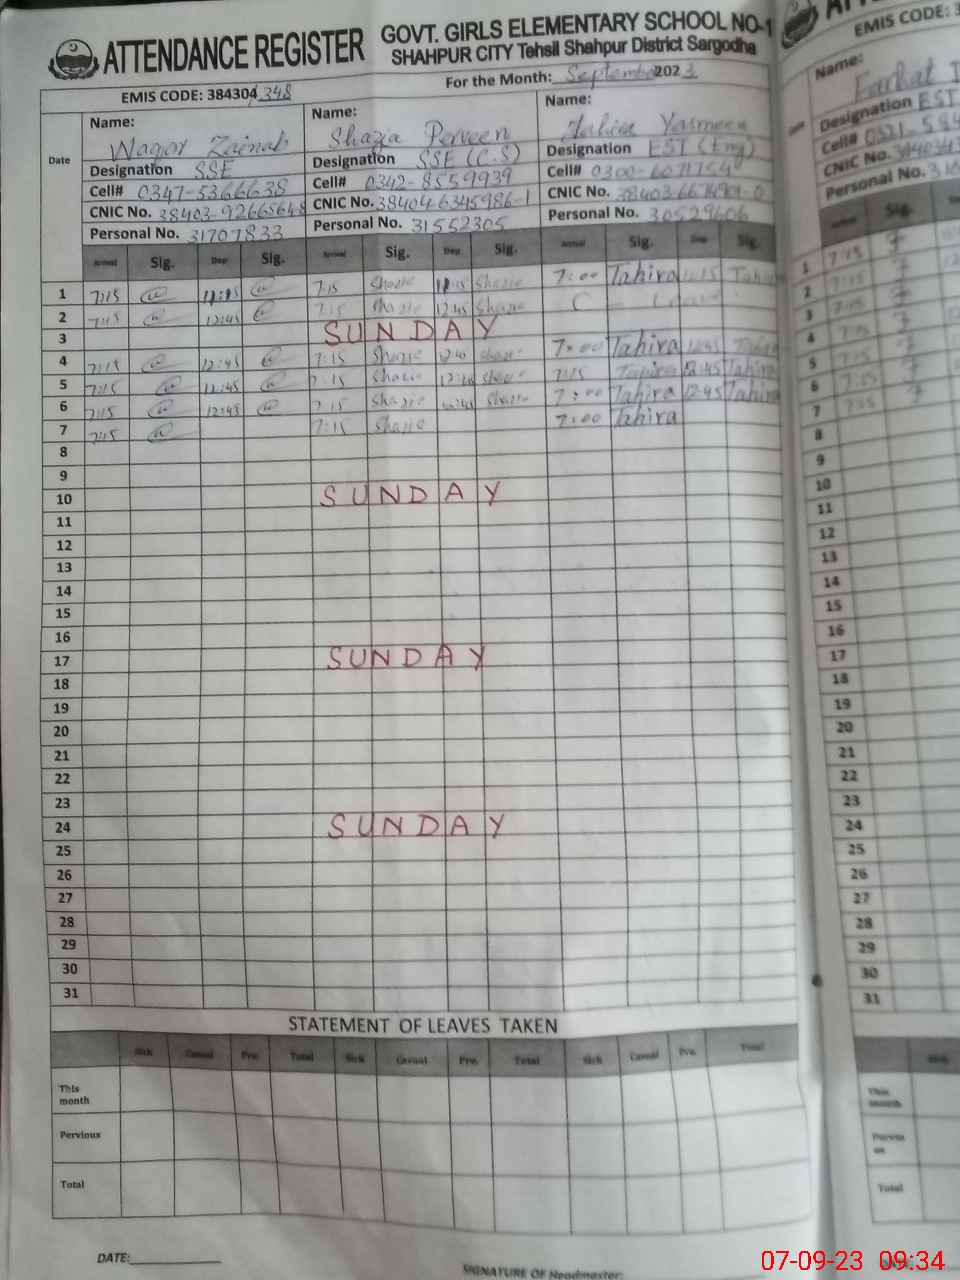 ATTENDANCE REGISTER
GOVT. GIRLS ELEMENTARY SCHOOL NO-1
SHAHPUR CITY Tehsil Shahpur District Sargodha
EMIS CODE: 384304348
For the Month: September 2023
Date
Name: Waqar Zainab
Designation SSE
Cell# 0347-5366638
CNIC No. 38403-92665648
Personal No. 31707833
Name: Shazia Perveen
Designation SSE (C.S)
Cell# 0342-8559939
CNIC No. 3840463459861
Personal No. 31552305
Name: Tahira Yasmeen
Designation EST (Eng)
Cell# 0300-6071754
CNIC No.
Personal No. 30529606
Arrival Sig. Dep Sig. Arrival Sig. Dep Sig. Arrival Sig. Dep Sig.
1 7:15 7:15 Shazie Shazie 7:00 Tahira Tahira
2 7:15 12:45 7:15 Shazie 12:45 Shazie C - Leave
3 SUNDAY
4 7:15 12:45 7:15 Shazie Shazie 7:00 Tahira 12:45 Tahira
5 7:15 12:45 7:15 Shazie Shazie 7:15 Tahira 12:45 Tahira
6 7:15 12:45 7:15 Shazie 12:45 Shazie 7:00 Tahira 12:45 Tahira
7 7:15 7:15 Shazie 7:00 Tahira
8
9
10 SUNDAY
11
12
13
14
15
16
17 SUNDAY
18
19
20
21
22
23
24 SUNDAY
25
26
27
28
29
30
31
STATEMENT OF LEAVES TAKEN
Sick Casual Pre. Total Sick Casual Pre. Total Sick Casual Pre. Total
This month
Pervious
Total
DATE:
SIGNATURE OF Headmaster:
EMIS CODE: 3
Name:
Farhat
Designation EST
Cell# 0321-584
CNIC No.
Personal No.
Sig.
1 7:15
2 7:15
3 7:15
4 7:15
5 7:15
6 7:15
7 7:15
8
9
10
11
12
13
14
15
16
17
18
19
20
21
22
23
24
25
26
27
28
29
30
31
This month
Total
07-09-23 09:34